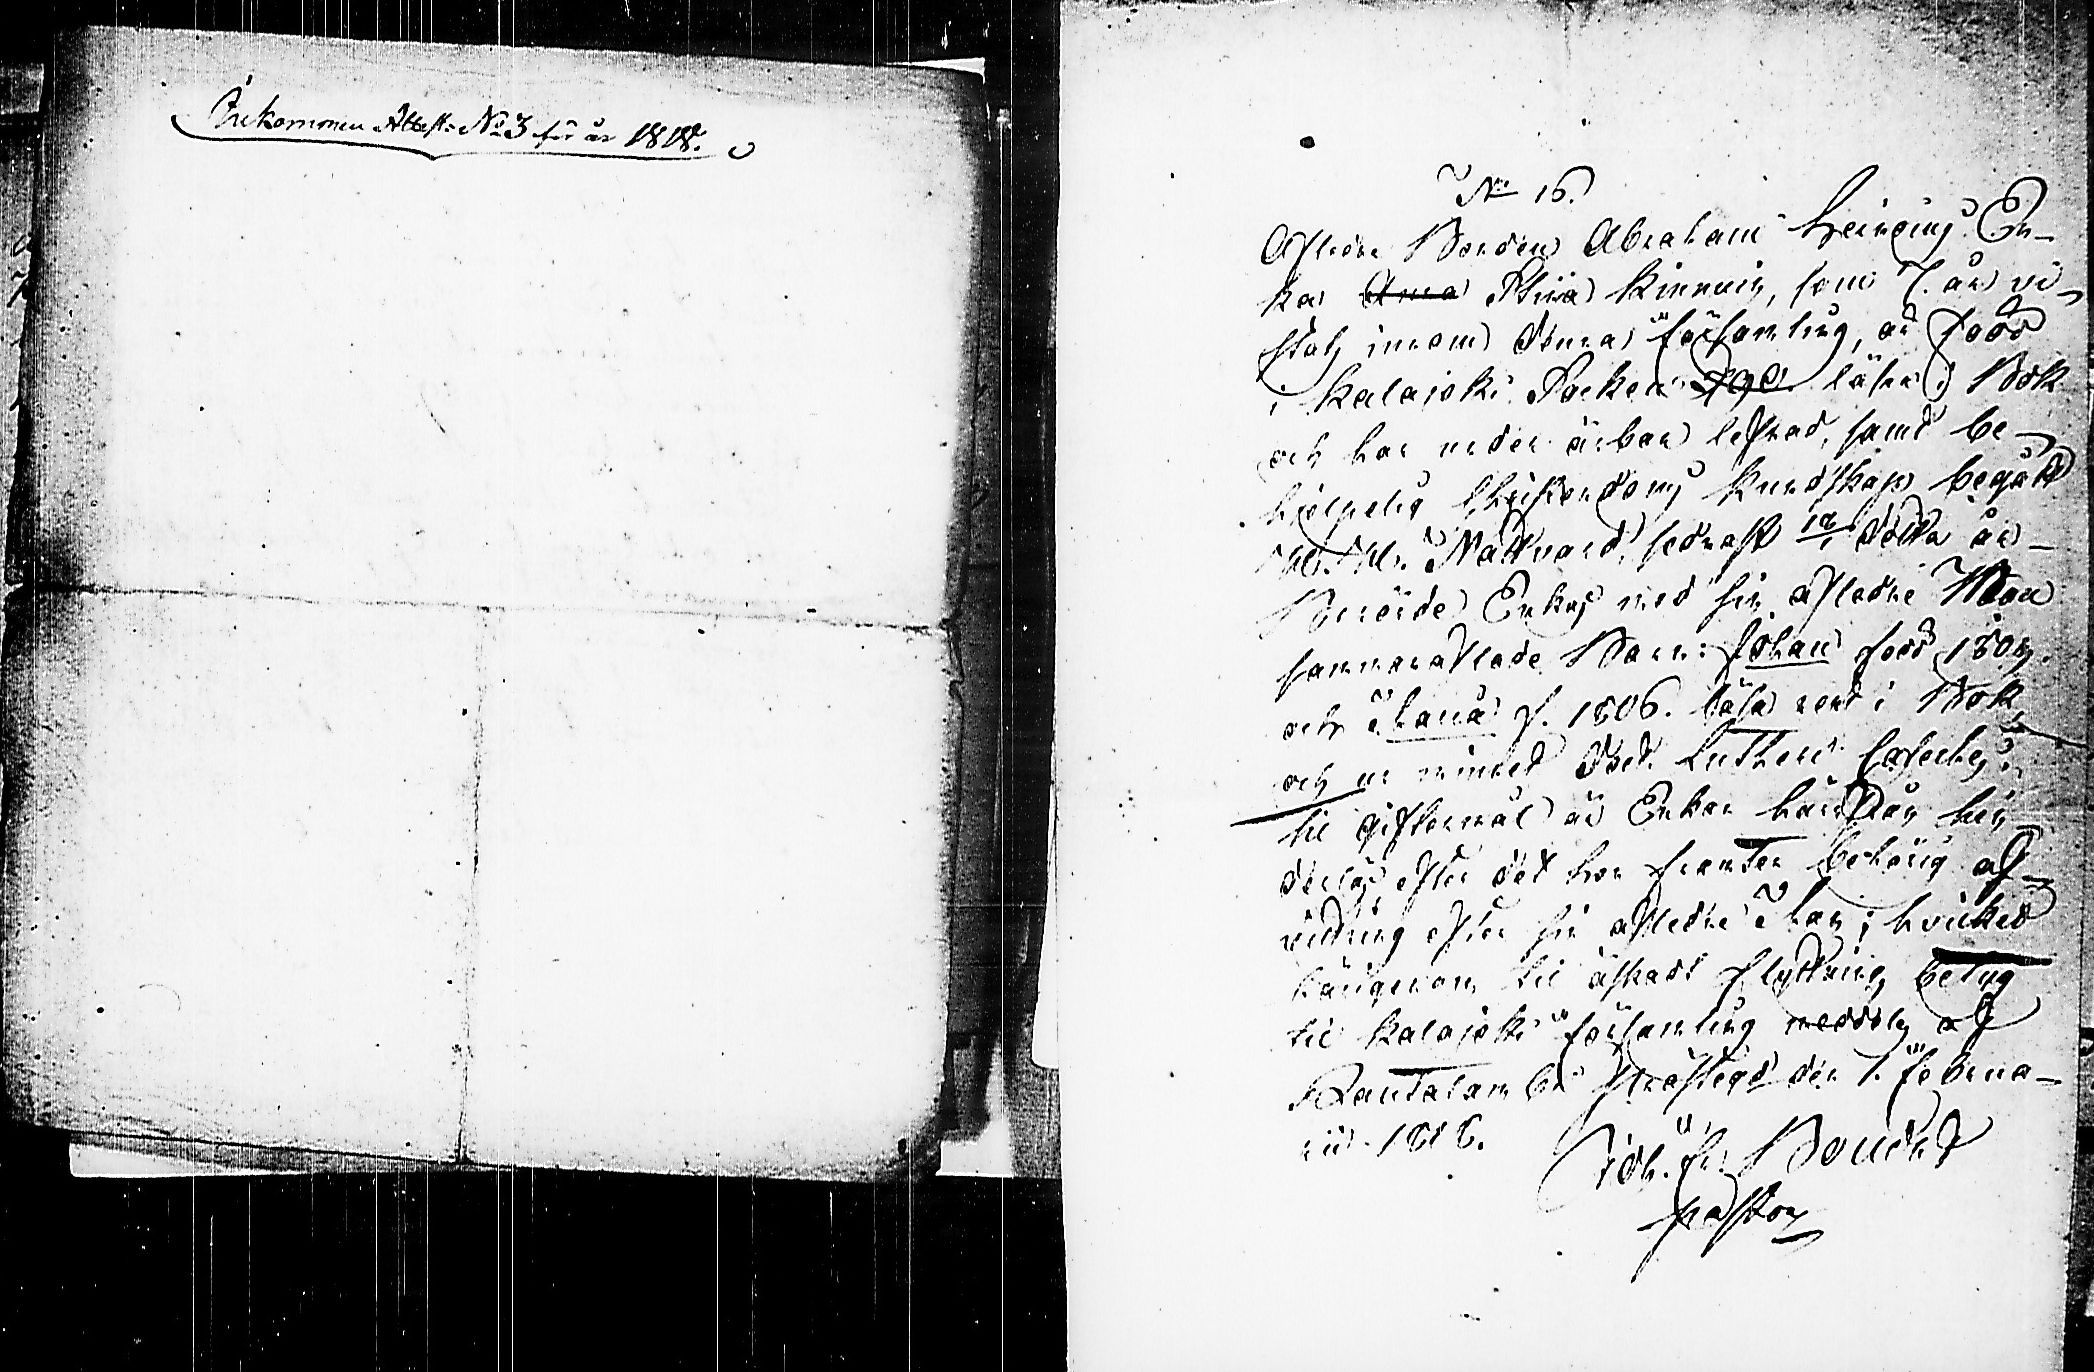 Inkommen Attest No 3 för år 1818.
No 16.
Afledne Bonden Abraham Heinoins En-
ka Anna Stina Kinnuin, som 7. år vi-
stats innom denna församling, är född
i Kalajoki Socken 1790 läser i Bok
och har under ärbar lefnad, samt be-
hjelpelig Christendoms kundskap begådt
H. H. Nattvard, sednast i detta år
Berörde Enkas med sin afledne Man
sammanaflade Barn: Johan född 180
och Johanna f. 1806. läsa rent i Bok
och ur minnet Doct. Lutheri Cateches:
til giftermål är Enkan härstädes hin-
derlös efter det hon framter behörig af-
vittring efter sin afledne Man; hvilket
härigenom til äskadt flyttnings betyg
til Kalajoki församling meddelas af
Rautalambi Prästegd den 7. Februa-
rii 1818.
Joh. Fr. Bonsdorff
Pastor